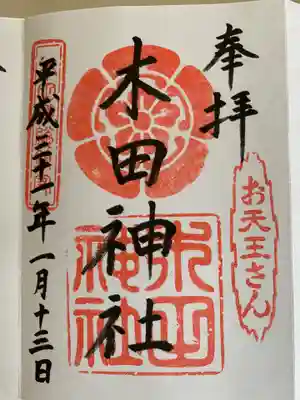 奉拝
お天王さん
木田神社
平成三十一年一月十三日